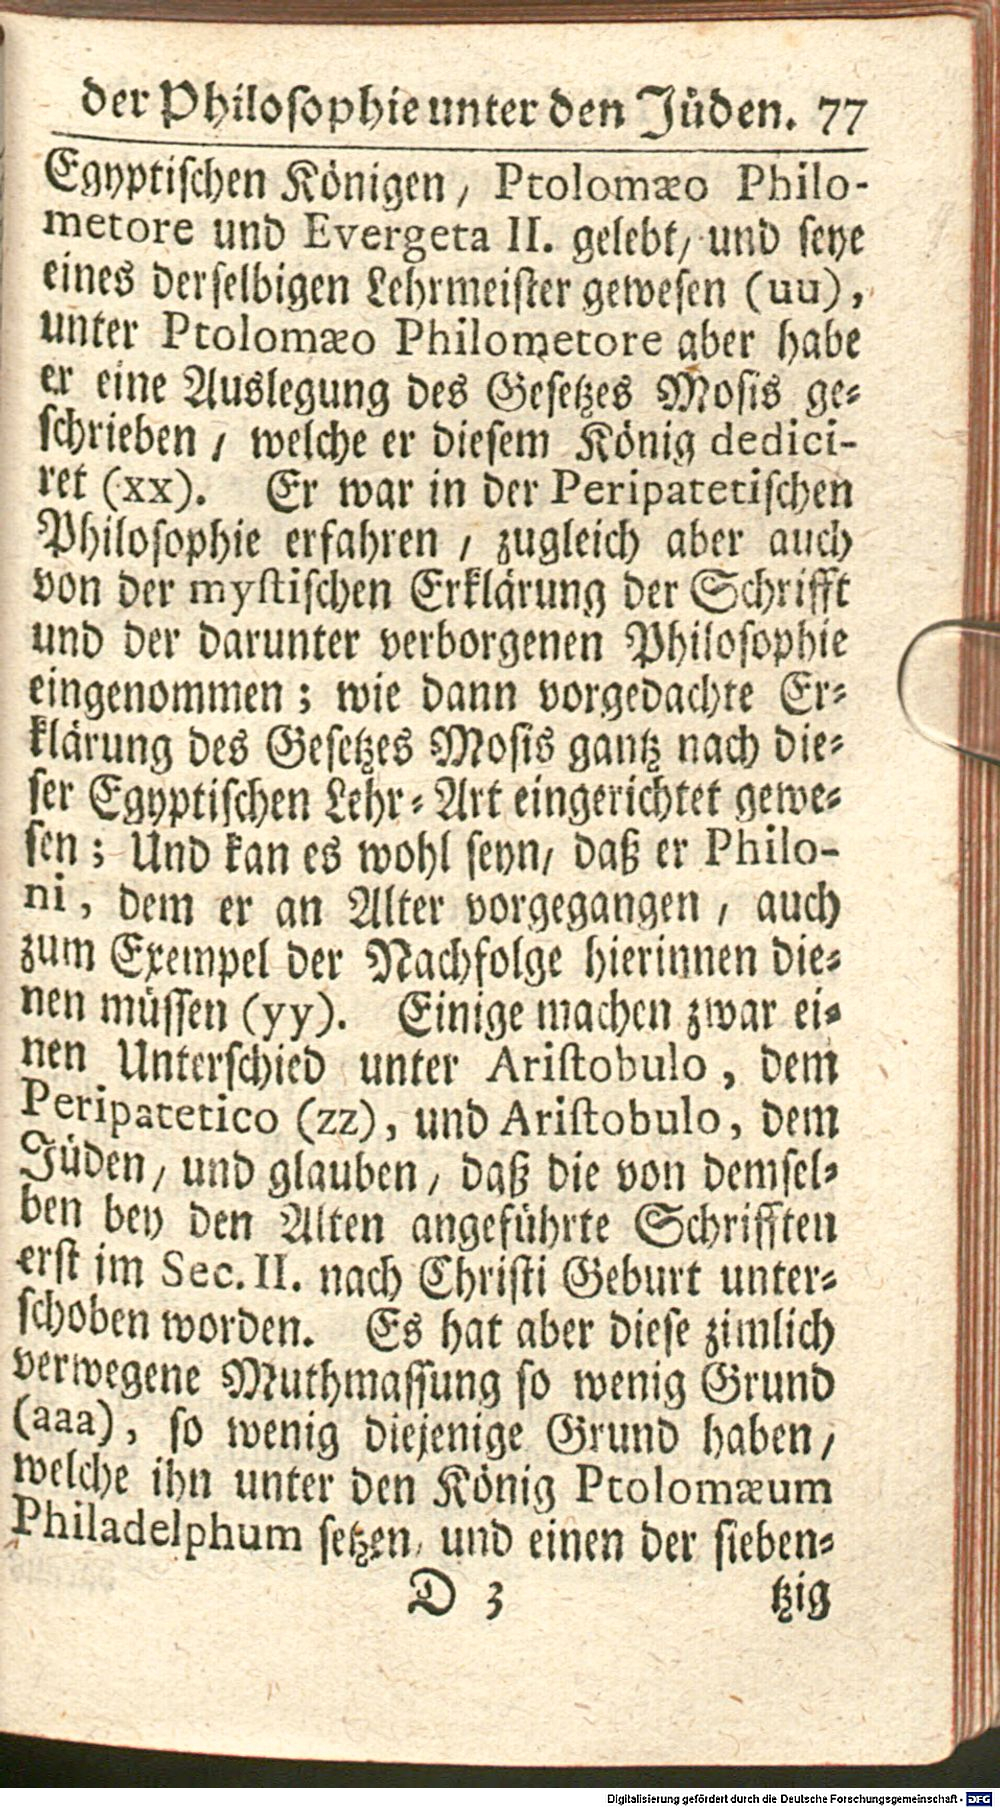 der Philosophie unter den Jüden. 77
Egyptischen Königen, Ptolomæo Philo-
metore und Evergeta II. gelebt, und seye
eines derselbigen Lehrmeister gewesen (uu),
unter Ptolomæo Philometore aber habe
er eine Auslegung des Gesetzes Mosis ge-
schrieben, welche er diesem König dedici-
ret (xx). Er war in der Peripatetischen
Philosophie erfahren, zugleich aber auch
von der mystischen Erklärung der Schrifft
und der darunter verborgenen Philosophie
eingenommen; wie dann vorgedachte Er-
klärung des Gesetzes Mosis gantz nach die-
ser Egyptischen Lehr-Art eingerichtet gewe-
sen; Und kan es wohl seyn, daß er Philo-
ni, dem er an Alter vorgegangen, auch
zum Exempel der Nachfolge hierinnen die-
nen müssen (yy). Einige machen zwar ei-
nen Unterschied unter Aristobulo, dem
Peripatetico (zz), und Aristobulo, dem
Jüden, und glauben, daß die von demsel-
ben bey den Alten angeführte Schrifften
erst im Sec. II. nach Christi Geburt unter-
schoben worden. Es hat aber diese zimlich
verwegene Muthmassung so wenig Grund
(aaa), so wenig diejenige Grund haben,
welche ihn unter den König Ptolomæum
Philadelphum setzen, und einen der sieben-
D 3 tzig
Digitalisierung gefördert durch die Deutsche Forschungsgemeinschaft - DFG